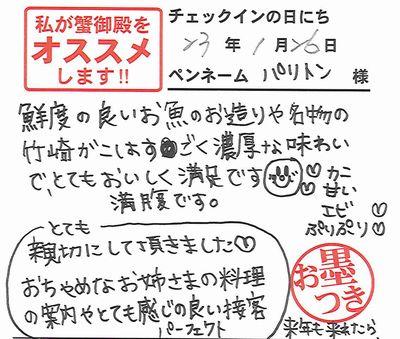 私が蟹御殿を
オススメ
します!!
チェックインの日にち
23年1月26日
ペンネーム パリトン 様
鮮度の良いお魚のお造りや名物の
竹崎がにはすごく濃厚な味わい
で、とてもおいしく満足です
満腹です。
♡カニ
甘い
エビ♡
ぷりぷり♡
とても
親切にして頂きました♡
おちゃめなお姉さまの料理
の案内やとても感じの良い接客
パーフェクト
お墨つき
来年も来れたら